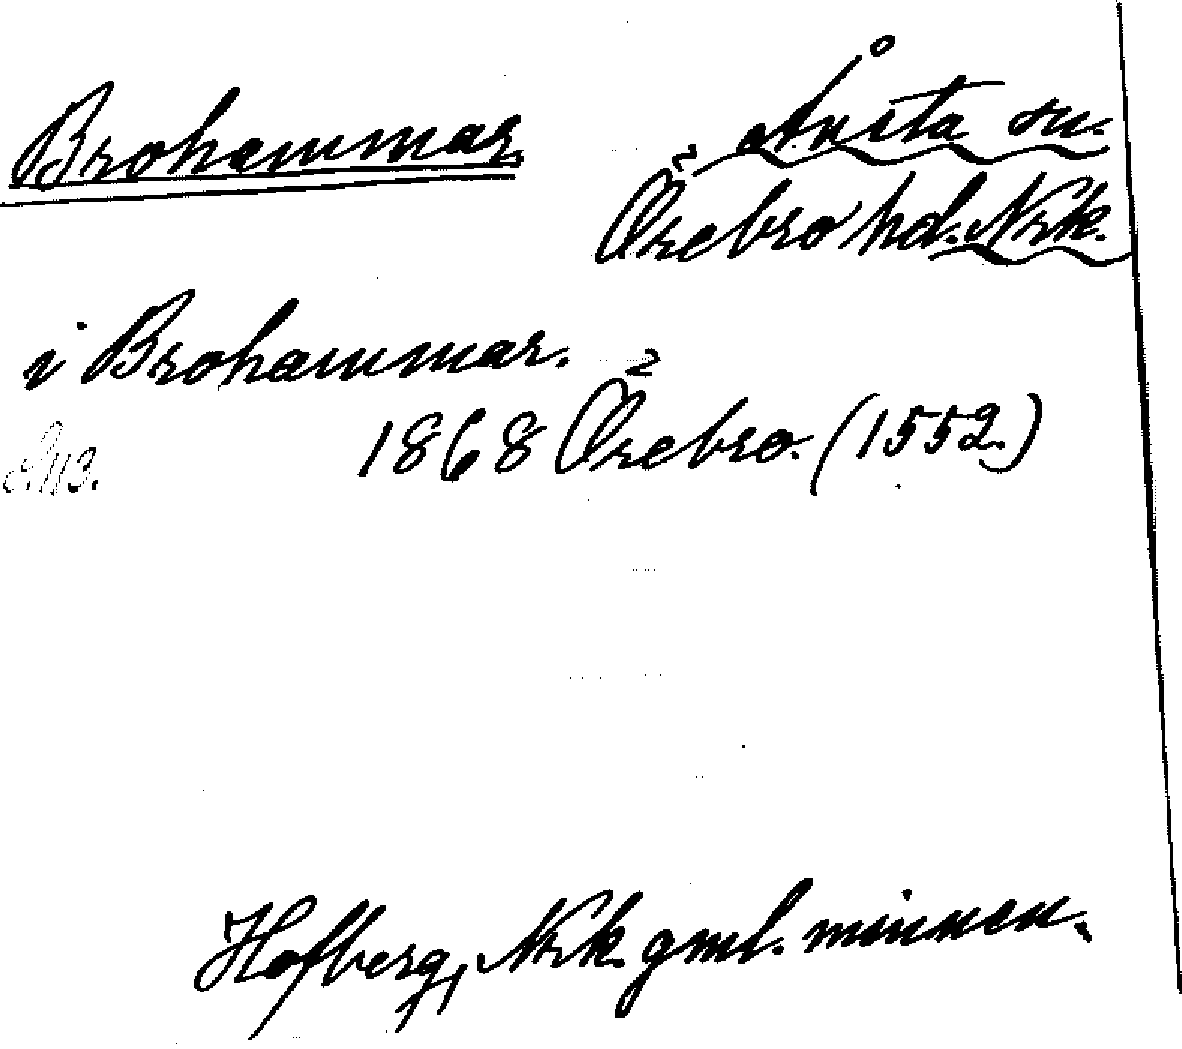 Brohammar
Ånsta sn.
Örebro hd. Nrk.
i Brohammar.
1868 Örebro. (1552.)
Hofberg, Nrk. gml. minnen.